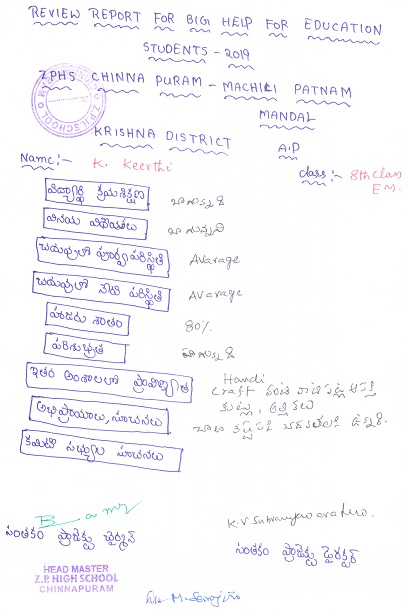 REVIEW REPORT FOR BIG HELP FOR EDUCATION
STUDENTS - 2019
ZPHS CHINNA PURAM - MACHILI PATNAM
MANDAL
KRISHNA DISTRICT
A.P
Name:- K. Keerthi
class:- 8th Class
E.M.
విద్యార్థి క్రమశిక్షణ బాగున్నది
వినయ విధేయతలు బాగున్నది
చదువులో పూర్వపరిస్థితి Avarage
చదువులో నేటి పరిస్థితి Avarage
హాజరు శాతం 80%
పరిశుభ్రత బాగున్నది
ఇతర అంశాలలో ప్రావీణ్యత Handi
craft వంటి
కుట్లు, అల్లికలు
అభిప్రాయాలు, సూచనలు చాలా
కమిటీ సభ్యుల సూచనలు
సంతకం ప్రాజెక్టు చైర్మన్
సంతకం ప్రాజెక్టు డైరక్టర్
HEAD MASTER
Z.P. HIGH SCHOOL
CHINNAPURAM